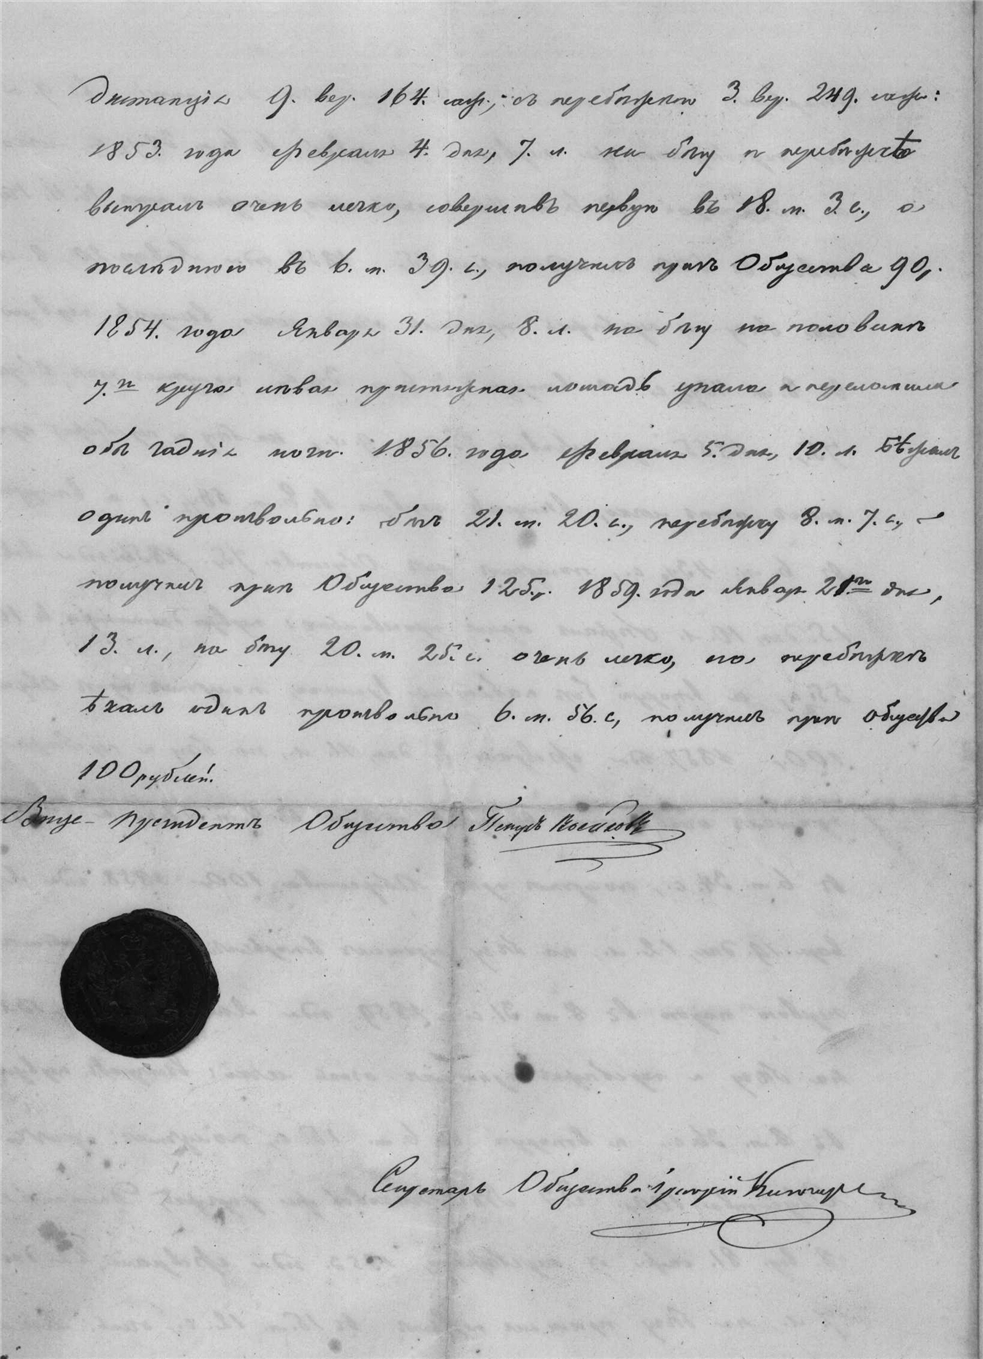 дистанцiя 9. вер. 164. саж., съ перебѣжкою 3. вер. 249. саж:
1853. года Февраля 4. дня, 7. л. на бѣгу и перебѣжкѣ
выиграл очень легко, совершивъ первую въ 18. м. 3. с., а
послѣднюю въ 6. м. 39. с., получилъ призъ Общества 90 р.
1854. года Января 31. дня, 8. л. на бѣгу на половинѣ
7.го круга лѣвая пристяжная лошадь упала и переломила
обѣ заднiя ноги. 1856. года Февраля 5. дня, 10. л. бѣжалъ
одинъ произвольно: бѣгъ 21. м. 20. с., перебѣжку 8. м. 7. с.,
получилъ призъ Общества 125 р. 1859. года Января 21.го дня,
13. л., на бѣгу 20. м. 25. с. очень легко, на перебѣжкѣ
ѣхалъ одинъ произвольно 6. м. 56. с, получилъ призъ общества
100 рублей.
Вице-Президентъ Общества Петръ
Секретарь Общества Григорiй